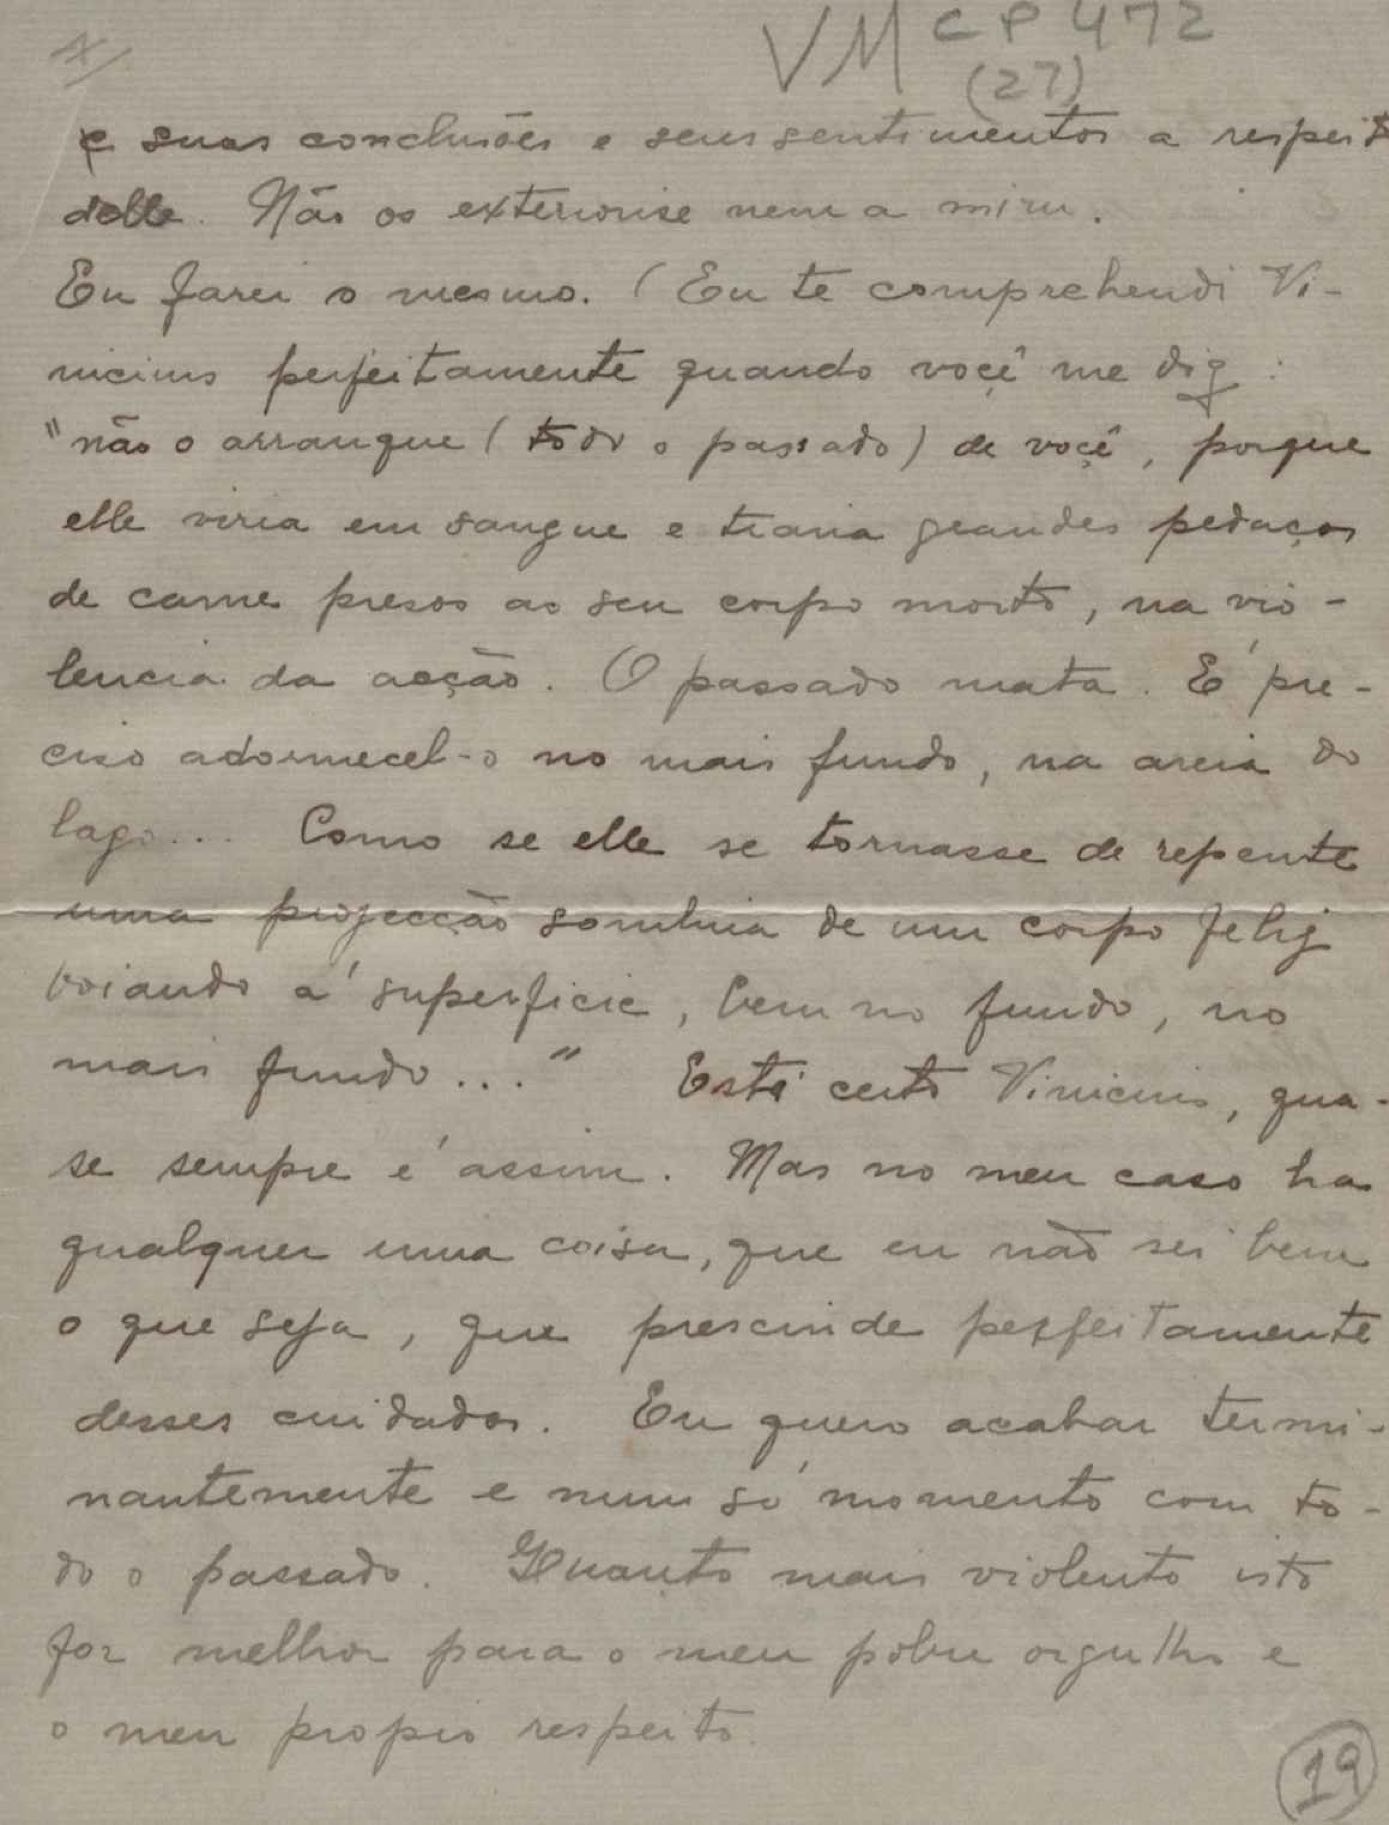 VM CP 472
(27)
e suas conclusões e seus sentimentos a respeito
delle. Não os exteriorise nem a mim.
Eu farei o mesmo. (Eu te comprehendi Vi-
nicius perfeitamente quando você me diz:
"não o arranque (todo o passado) de você, porque
elle viria em sangue e traria grandes pedaços
de carne presos ao seu corpo morto, na vio-
lencia da acção. O passado mata. É pre-
ciso adormecel-o no mais fundo, na areia do
lago... Como se elle se tornasse de repente
uma projecção sombria de um corpo feliz
boiando á superficie, bem no fundo, no
mais fundo..." Está certo Vinicius, qua-
se sempre é assim. Mas no meu caso ha
qualquer uma coisa, que eu não sei bem
o que seja, que prescinde perfeitamente
desses cuidados. Eu quero acabar termi-
nantemente e num só momento com to-
do o passado. Quanto mais violento isto
for melhor para o meu pobre orgulho e
o meu proprio respeito.
19